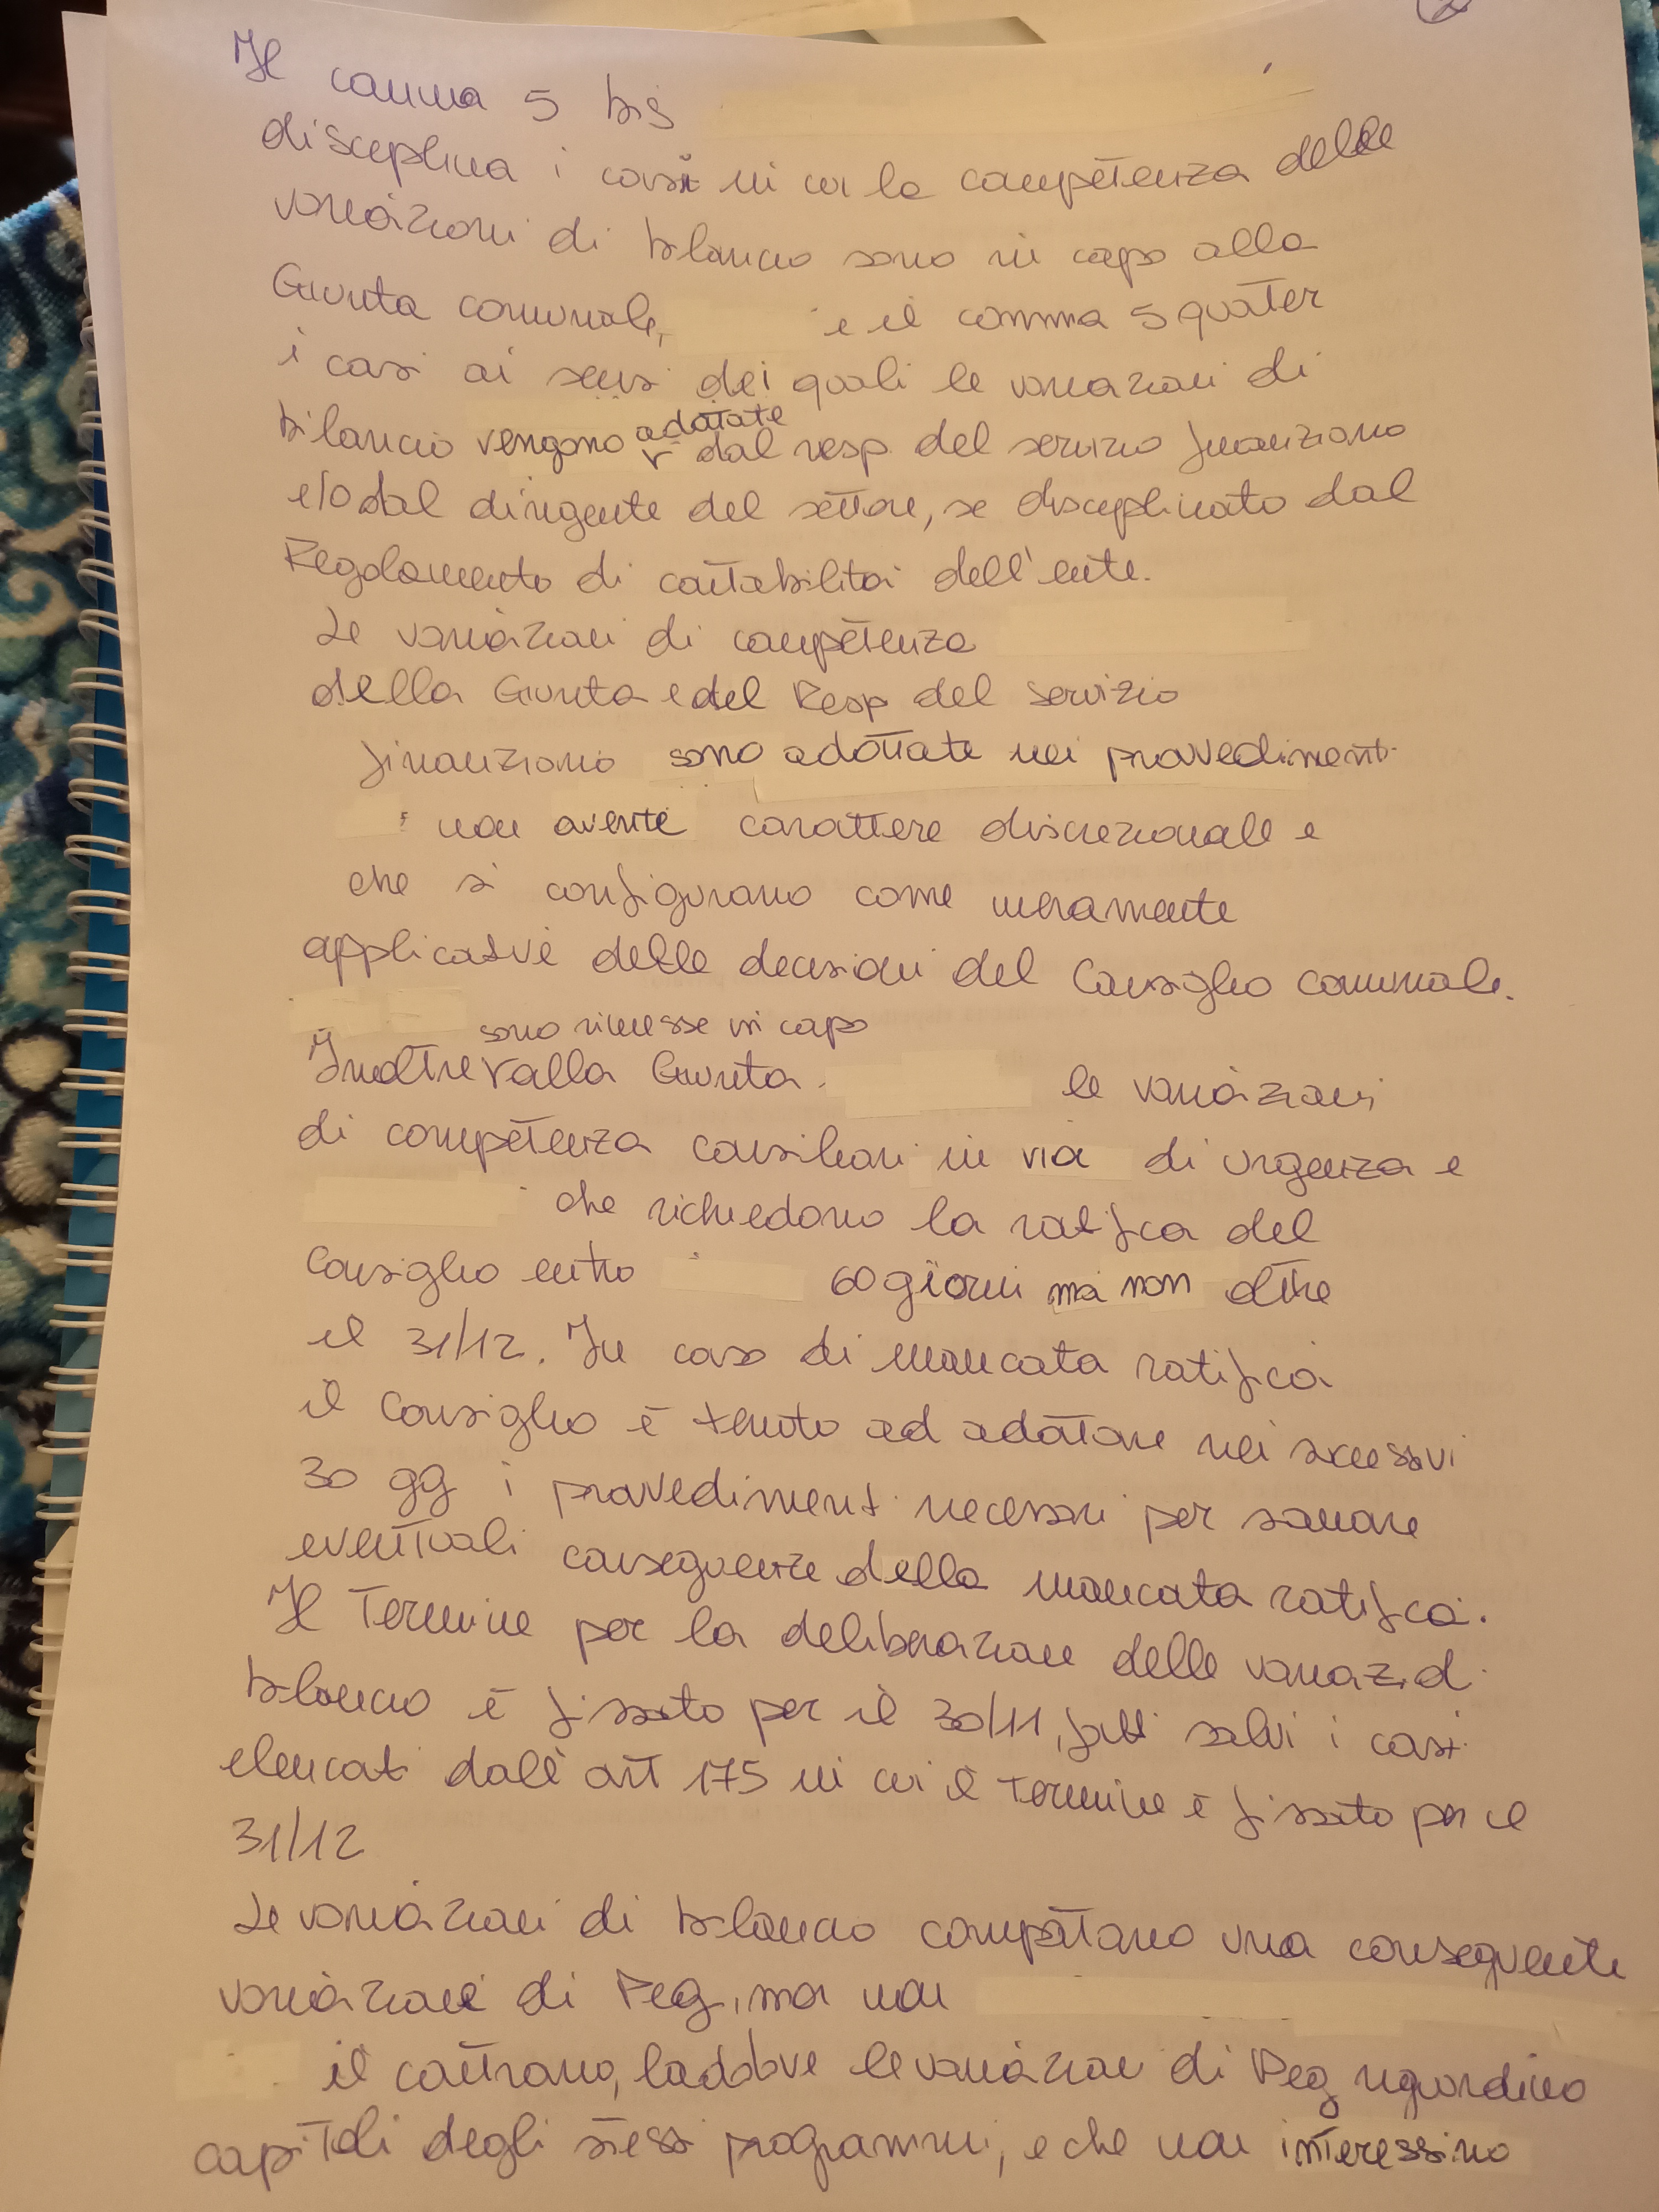 2
Il comma 5 bis
disciplina i casi in cui la competenza delle
variazioni di bilancio sono in capo alla
Giunta comunale, e il comma 5 quater
i casi ai sensi dei quali le variazioni di
bilancio vengono adottate dal resp del servizio finanziario
e/o dal dirigente del settore, se disciplinato dal
Regolamento di contabilità dell'ente.
Le variazioni di competenza
della Giunta e del Resp del servizio
finanziario sono adottate nei provvedimenti
non avente carattere discrezionale e
che si configurano come meramente
applicative delle decisioni del Consiglio comunale.
sono rimesse in capo
Inoltre alla Giunta. le variazioni
di competenza consiliari in via di urgenza e
che richiedono la ratifica del
Consiglio entro 60 giorni ma non oltre
il 31/12. In caso di mancata ratifica
il Consiglio è tenuto ad adottare nei successivi
30 gg i provvedimenti necessari per sanare
eventuali conseguenze della mancata ratifica.
Il Termine per la deliberazione delle variaz. di
bilancio è fissato per il 30/11, fatti salvi i casi
elencati dall'art 175 in cui il Termine è fissato per il
31/12
Le variazioni di bilancio comportano una conseguente
variazione di Peg, ma non
il contrario, laddove le variazioni di Peg riguardino
capitoli degli stessi programmi, e che non interessino